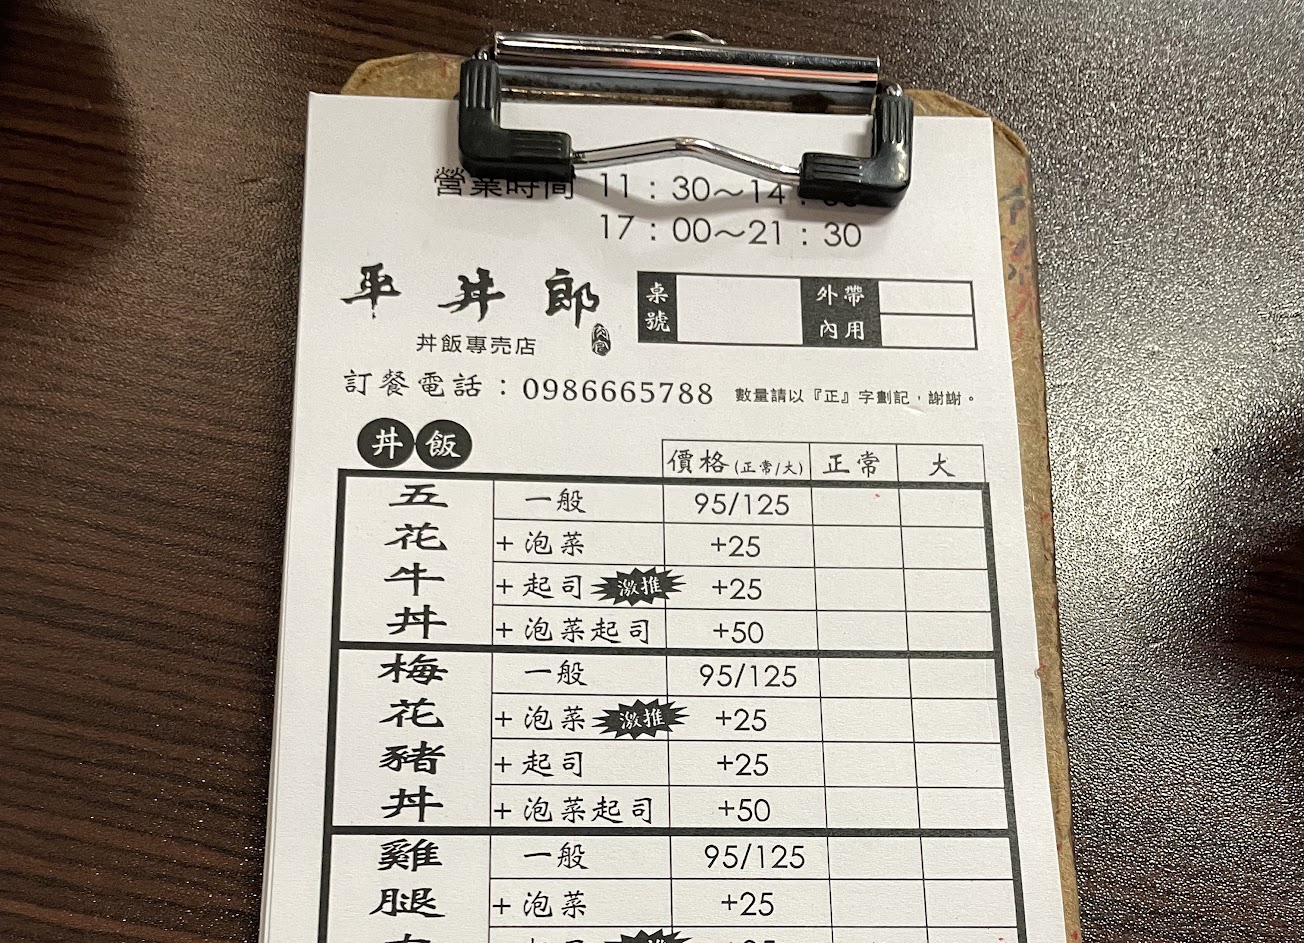 營業時間 11：30～14：
17：00～21：30
平丼郎
丼飯專売店
桌號 外帶 內用
訂餐電話：0986665788 數量請以『正』字劃記，謝謝。
丼飯
價格(正常/大) 正常 大
五花牛丼
一般 95/125
+泡菜 +25
+起司 激推 +25
+泡菜起司 +50
梅花豬丼
一般 95/125
+泡菜 激推 +25
+起司 +25
+泡菜起司 +50
雞腿
一般 95/125
+泡菜 +25